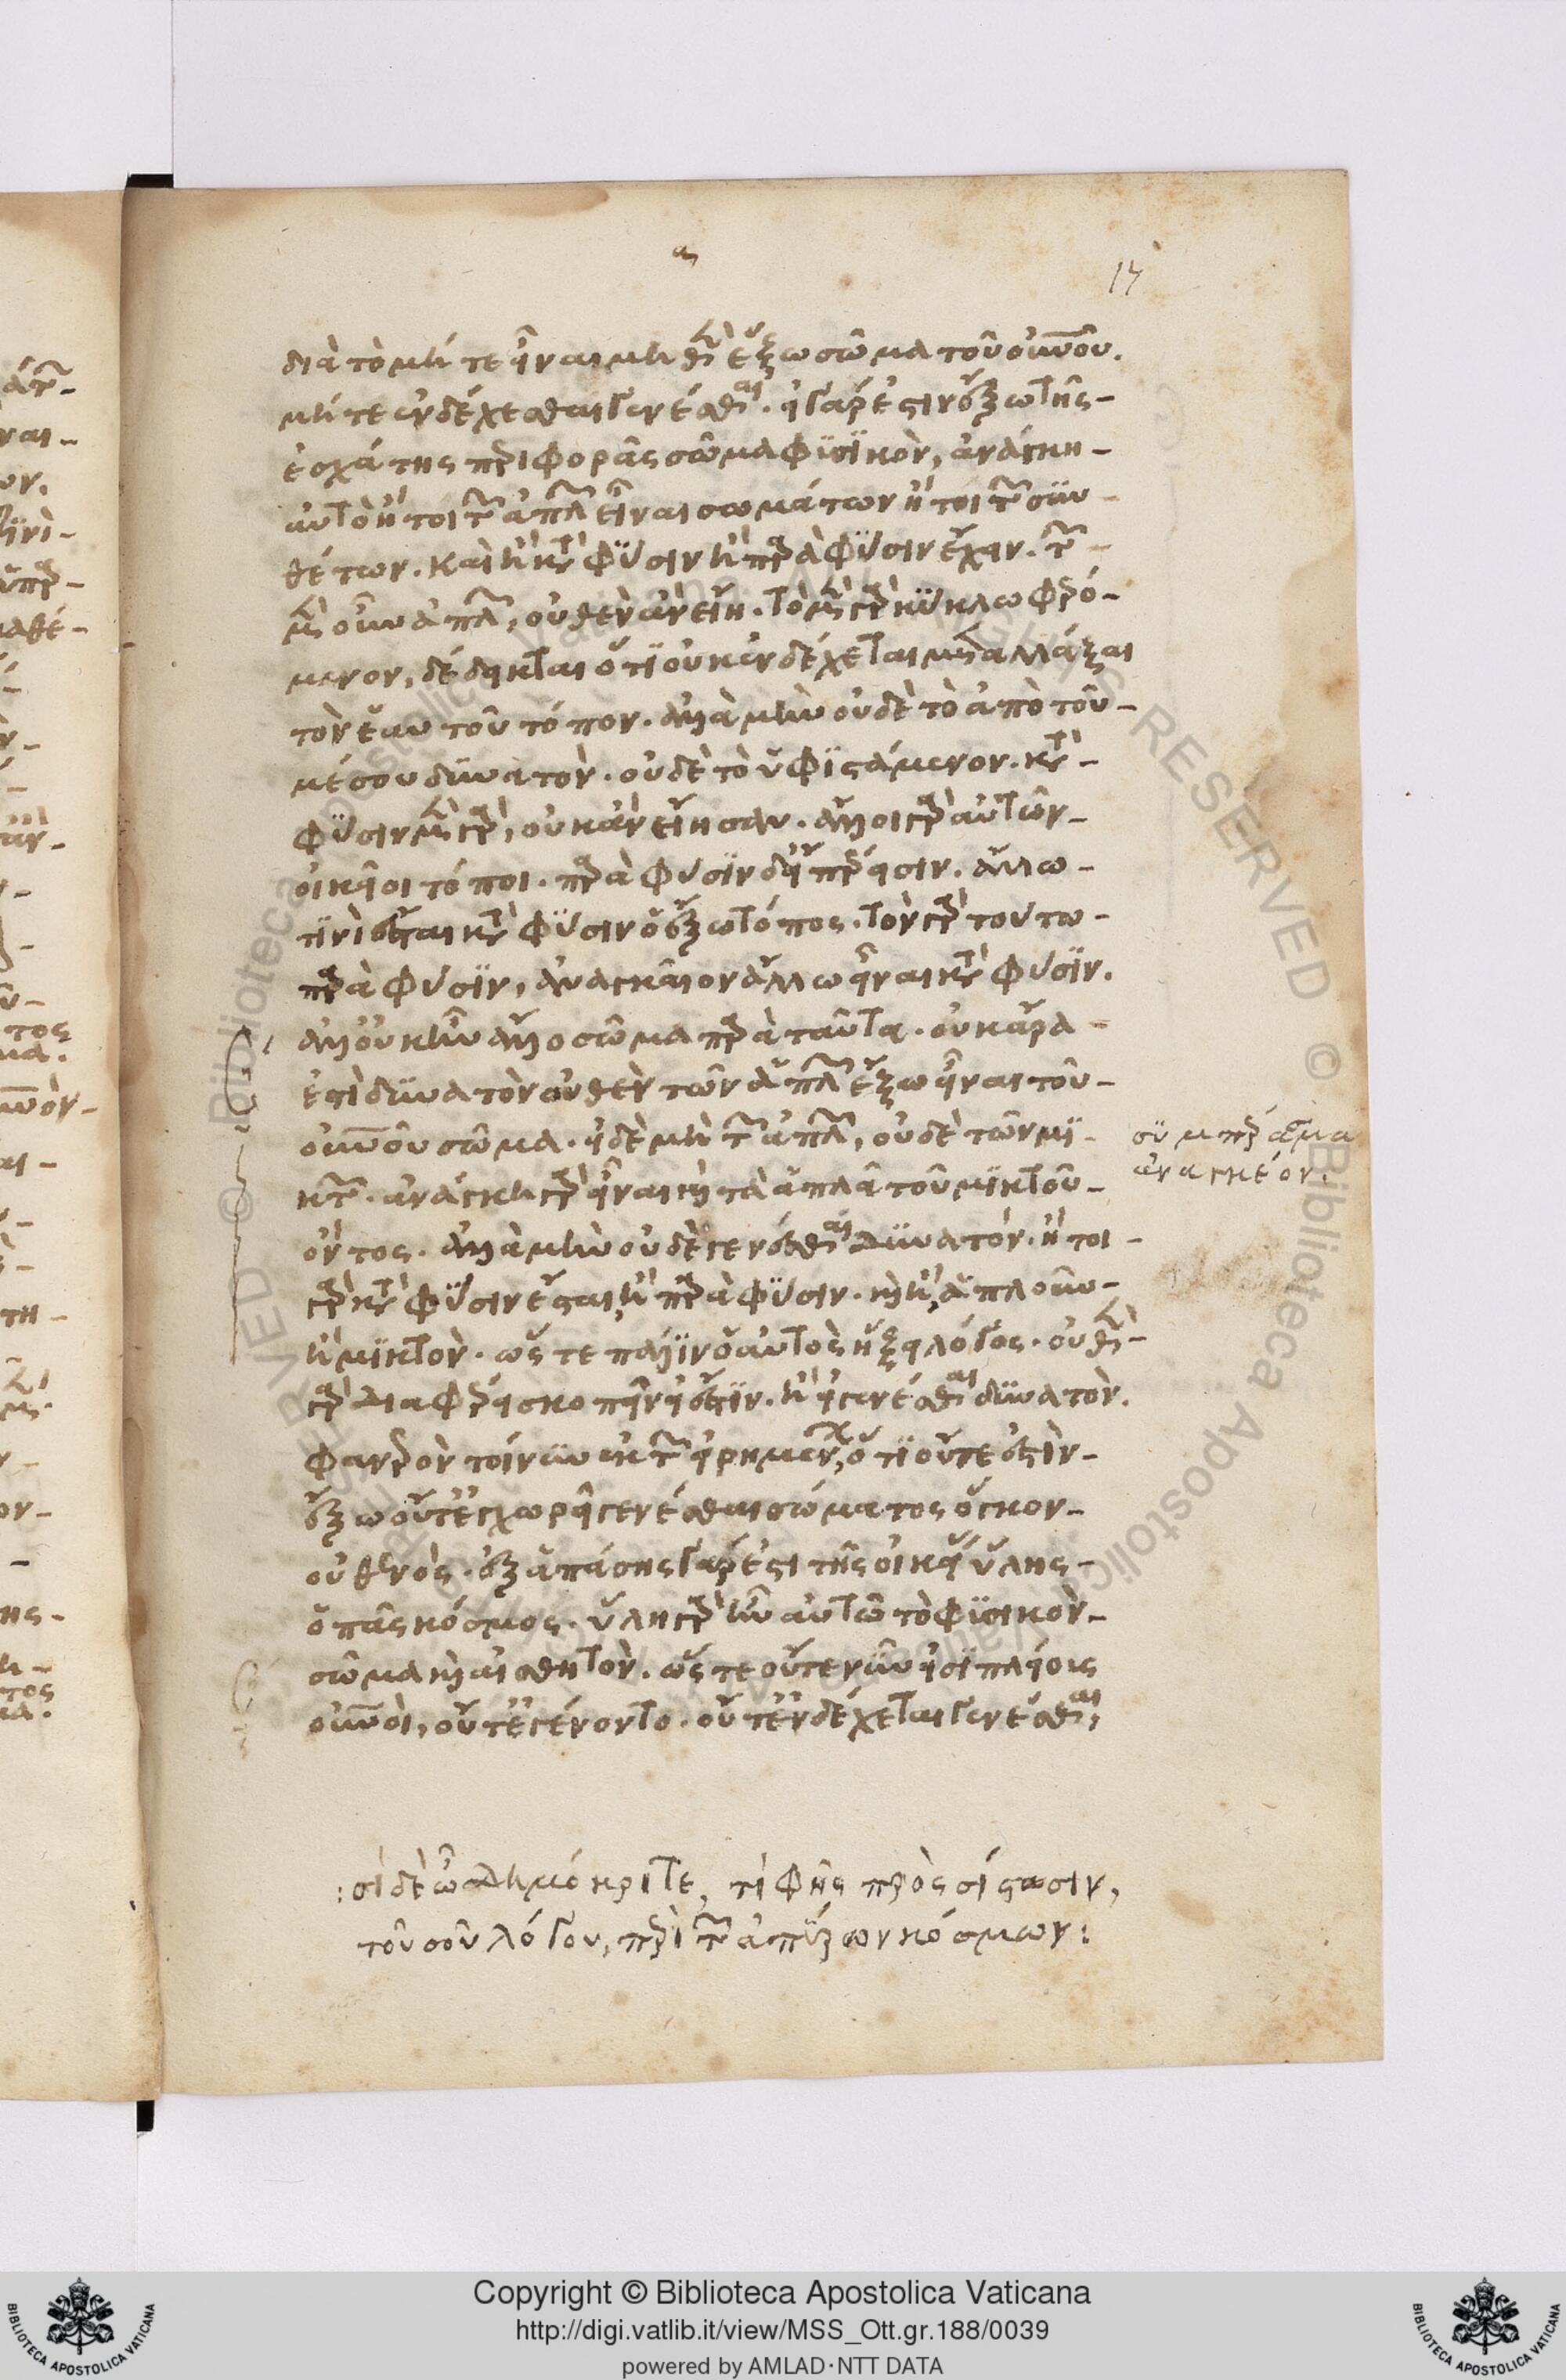 α
17
διὰ τὸ μή τε εἶναι μηδὲν ἔξω σῶμα τοῦ οὐνοῦ.
μήτε ἐνδέχεσθαι γενέσθαι. εἰ γάρ ἐστιν ἔξω τῆς
ἐσχάτης περιφορᾶς σῶμα φϋσϊκὸν, ἀνάγκη
αὐτὸ ἤτοι τῶν ἁπλῶν εἶναι σωμάτων ἤτοι τῶν σϋν
θέτων. καὶ ἢ κατὰ φϋσιν ἢ παρὰ φϋσιν ἔχειν. τῶν
μὲν οὖν ἁπλῶν, οὐθὲν ἂν εἴη. τὸ μὲν γὰρ κϋκλω φερό
μενον, δέδεικται ὅτϊ οὐκ ἐνδέχεται μεταλλάξαι
τὸν ἑαυτοῦ τόπον. ἀλλὰ μὴν οὐδὲ τὸ ἀπὸ τοῦ
μέσου δϋνατὸν. οὐδὲ τὸ ὑφϊστάμενον. κατὰ
φϋσιν μὲν γὰρ, οὐκ ἂν εἴησαν. ἄλλοι γὰρ αὐτῶν
οἰκεῖοι τόποι. παρὰ φύσϊν δ' εἴπερ εἰσιν. ἄλλω
τϊνὶ ἔσται κατὰ φϋσιν ὁ ἔξω τόπος. τὸν γὰρ τούτω
παρὰ φύσϊν, ἀναγκαῖον ἄλλω εἶναι κατὰ φύσϊν.
ἀλλ' οὐκ ἦν ἄλλο σῶμα παρὰ ταῦτα. οὐκ ἄρα
ἐστὶ δϋνατὸν οὐθὲν τῶν ἁπλῶν ἔξω εἶναι τοῦ
οὐνοῦ σῶμα. εἰ δὲ μὴ τῶν ἁπλῶν, οὐδὲ τῶν μϊ
κτῶν. ἀνάγκη γὰρ εἶναι καὶ τὰ ἁπλᾶ τοῦ μϊκτοῦ
ὄντος. ἀλλὰ μὴν οὐδὲ γενέσθαι δϋνατόν. ἤτοι
γὰρ κατὰ φϋσιν ἔσται, ἢ παρὰ φϋσιν. καὶ ἢ, ἁπλοῦν
ἢ μϊκτὸν. ὥστε πάλϊν ὁ αὐτὸς ἥξει λόγος. οὐδὲν
γὰρ διαφέρει σκοπεῖν εἰ ἔστϊν. ἢ εἰ γενέσθαι δϋνατὸν.
φανερὸν τοίνϋν ἐκ τῶν εἰρημένων, ὅτϊ οὔτε ἐστὶν
ἔξω οὔτ' ἐγχωρεῖ γενέσθαι σώματος ὄγκον
οὐθενὸς. ἐξ ἁπάσης γάρ ἐστι τῆς οἰκείας ὕλης
ὁ πᾶς κόσμος. ὕλη γὰρ ἦν αὐτῶ τὸ φϋσικὸν
σῶμα καὶ αἰσθητὸν. ὥστε οὔτε νῦν εἰσϊ πλείους
οὐνοὶ, οὔτ' ἐγένοντο. οὔτ' ἐνδέχεται γενέσθαι,
σϋμπέρασμα
ἀναγκέον.
:σὶ δὲ ὦ Δημόκριτε, τί φῆς πρὸς σίστασιν,
τοῦ σοῦ λόγου, περὶ τῶν ἀπείρων κόσμων:
Copyright © Biblioteca Apostolica Vaticana
http://digi.vatlib.it/view/MSS_Ott.gr.188/0039
powered by AMLAD·NTT DATA
BIBLIOTECA APOSTOLICA VATICANA
BIBLIOTECA APOSTOLICA VATICANA